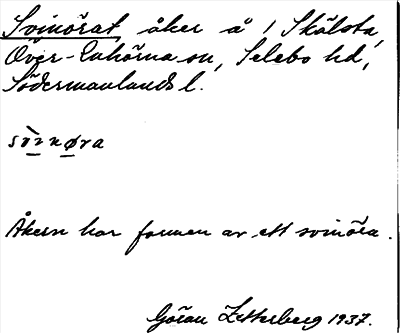 Svinörat åker å 1 Skälsta,
Över-Enhörna sn, Selebo hd,
Södermanlands l.
svìnøra
Åkern har formen av ett svinöra.
Göran Zetterberg 1937.